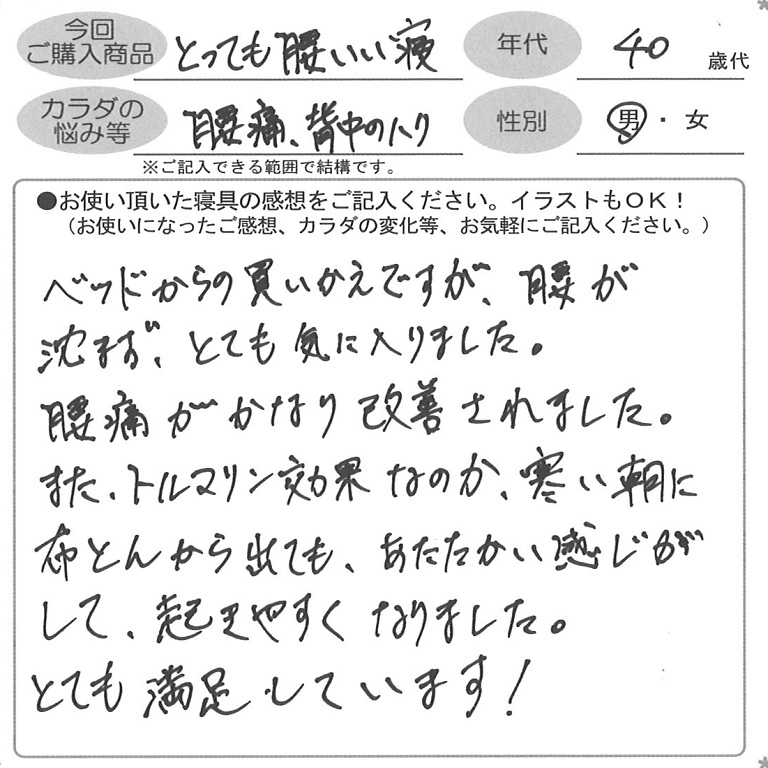 今回
ご購入商品 とっても腰いい寝 年代 40 歳代
カラダの
悩み等 腰痛、背中のハリ 性別 男・女
※ご記入できる範囲で結構です。
●お使い頂いた寝具の感想をご記入ください。イラストもOK！
（お使いになったご感想、カラダの変化等、お気軽にご記入ください。）
ベッドからの買いかえですが、腰が
沈まず、とても気に入りました。
腰痛がかなり改善されました。
また、トルマリン効果なのか、寒い朝に
布とんから出ても、あたたかい感じが
して、起きやすくなりました。
とても満足しています！